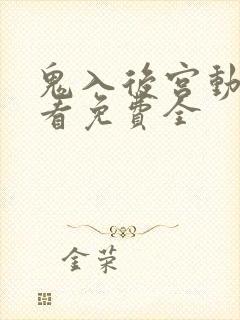 鬼入後宮動
看免費全
金荣